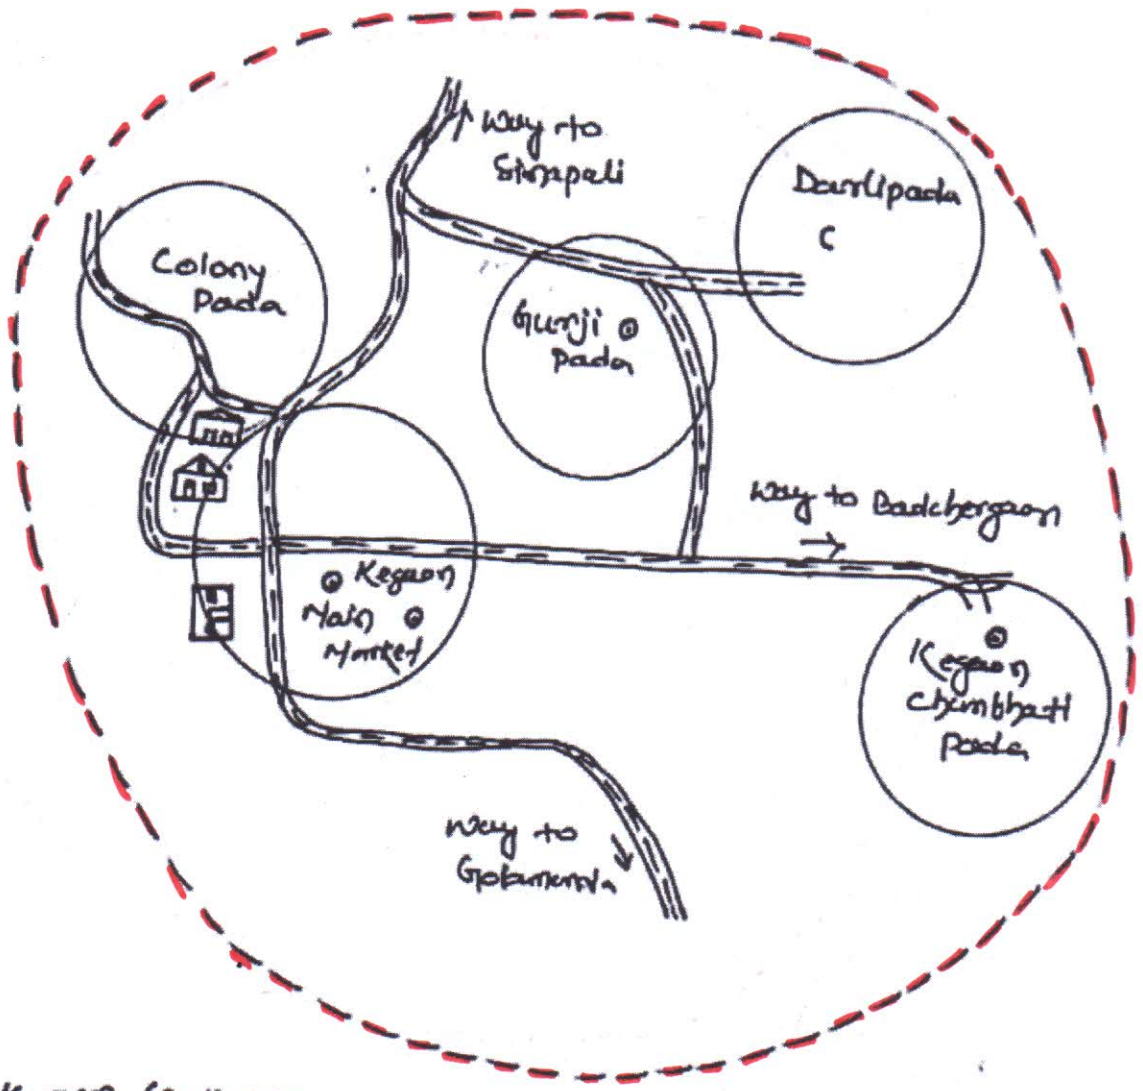 Way to
Sinapali
Darlipada
C
Colony
Pada
Gurji
pada
Way to Badchergaon
Kegaon
Main
Market
Kegaon
Chimbhati
Pada
Way to
Golamunda